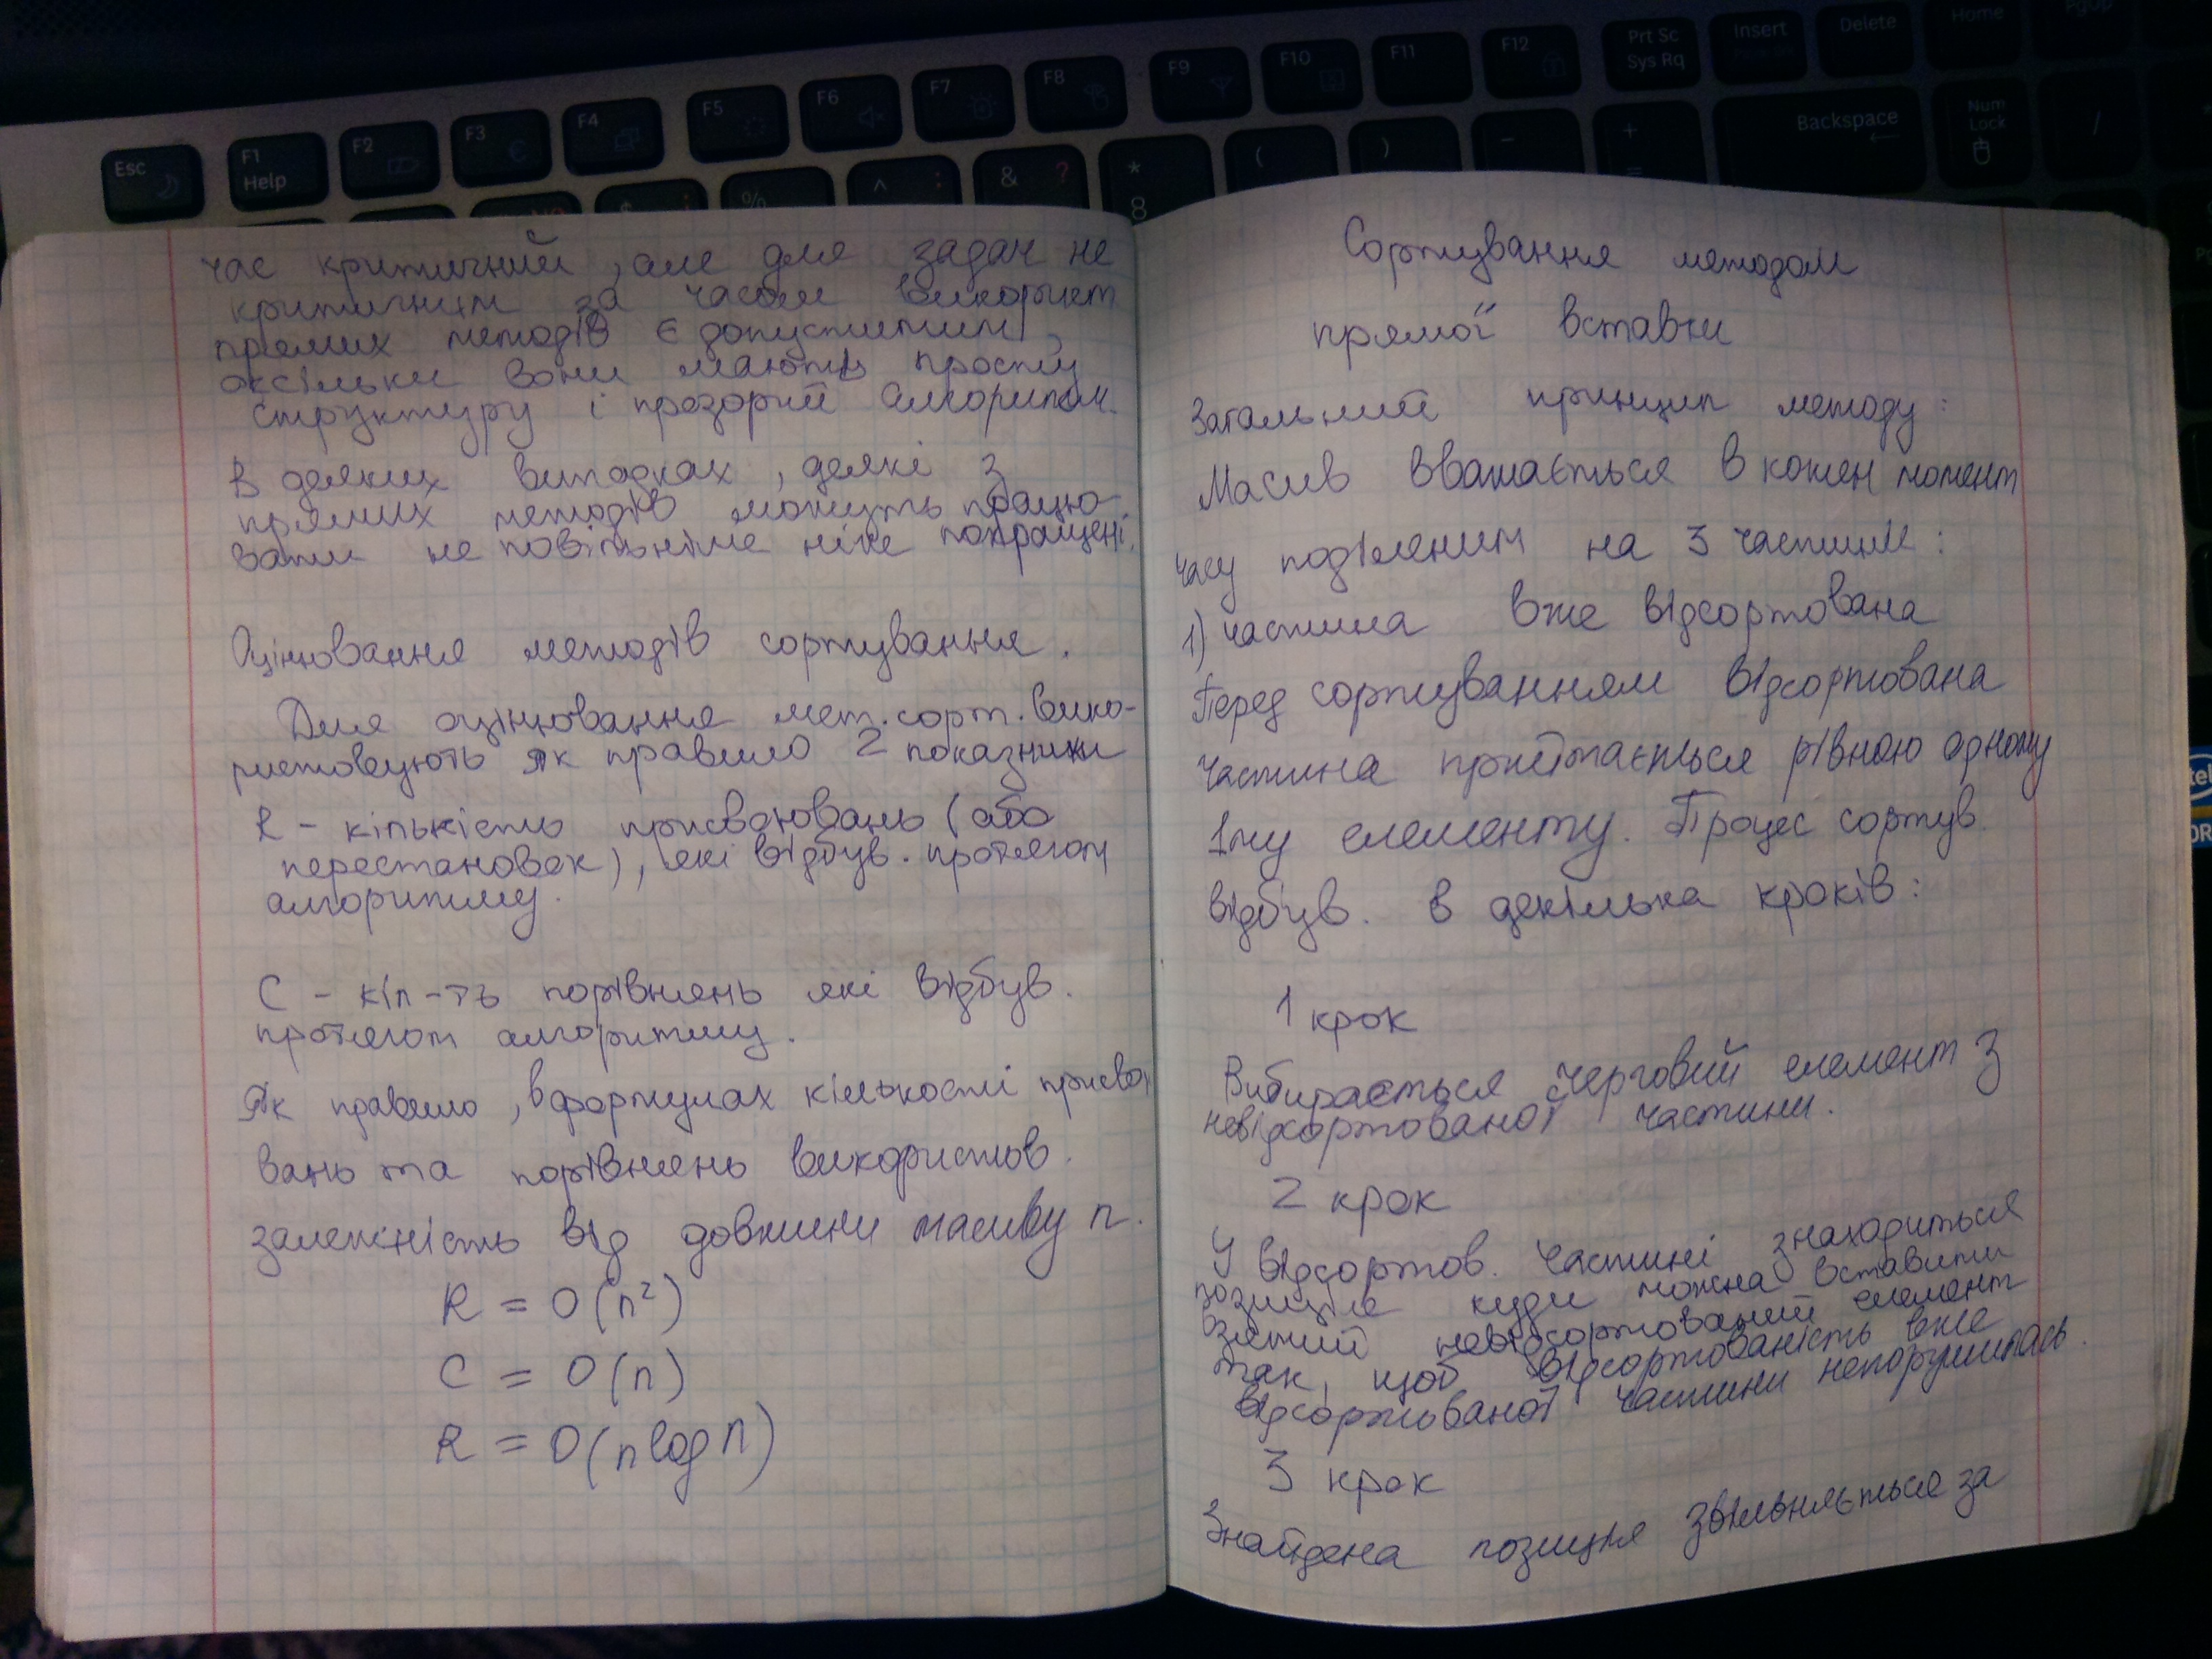 Esc
F1
Help
F2
F3
F4
F5
F6
F7
F8
F9
F10
F11
F12
Prt Sc
Sys Rq
Insert
Delete
Home
PgUp
% ^ : & ? * 8 ( ) - + =
Backspace
Num
Lock
/
час критичний, але для задач не
критичним за часом використ
прямих методів є допустимим,
оскільки вони мають просту
структуру і прозорий алгоритм.
В деяких випадках, деякі з
прямих методів можуть працю-
вати не повільніше ніж покращені.
Оцінювання методів сортування.
Для оцінювання мет. сорт. вико-
ристовують як правило 2 показники
R - кількість присвоювань (або
перестановок), які відбув. протягом
алгоритму.
C - кіл-ть порівнянь які відбув.
протягом алгоритму.
Як правило, в формулах кількості присвою
вань та порівнянь використов.
залежність від довжини масиву n.
R = O(n²)
C = O(n)
R = O(n log n)
Сортування методом
прямої вставки
Загальний принцип методу:
Масив вважається в кожен момент
часу поділеним на 3 частини:
1) частина вже відсортована
Перед сортуванням відсортована
частина приймається рівною одному
1му елементу. Процес сортув.
відбув. в декілька кроків:
1 крок
Вибирається черговий елемент з
невідсортованої частини.
2 крок
У відсортов. частині знаходиться
позиція куди можна вставити
взятий невідсортований елемент
так, щоб відсортованість вже
відсортованої частини непорушилась.
3 крок
Знайдена позиція звільняється за